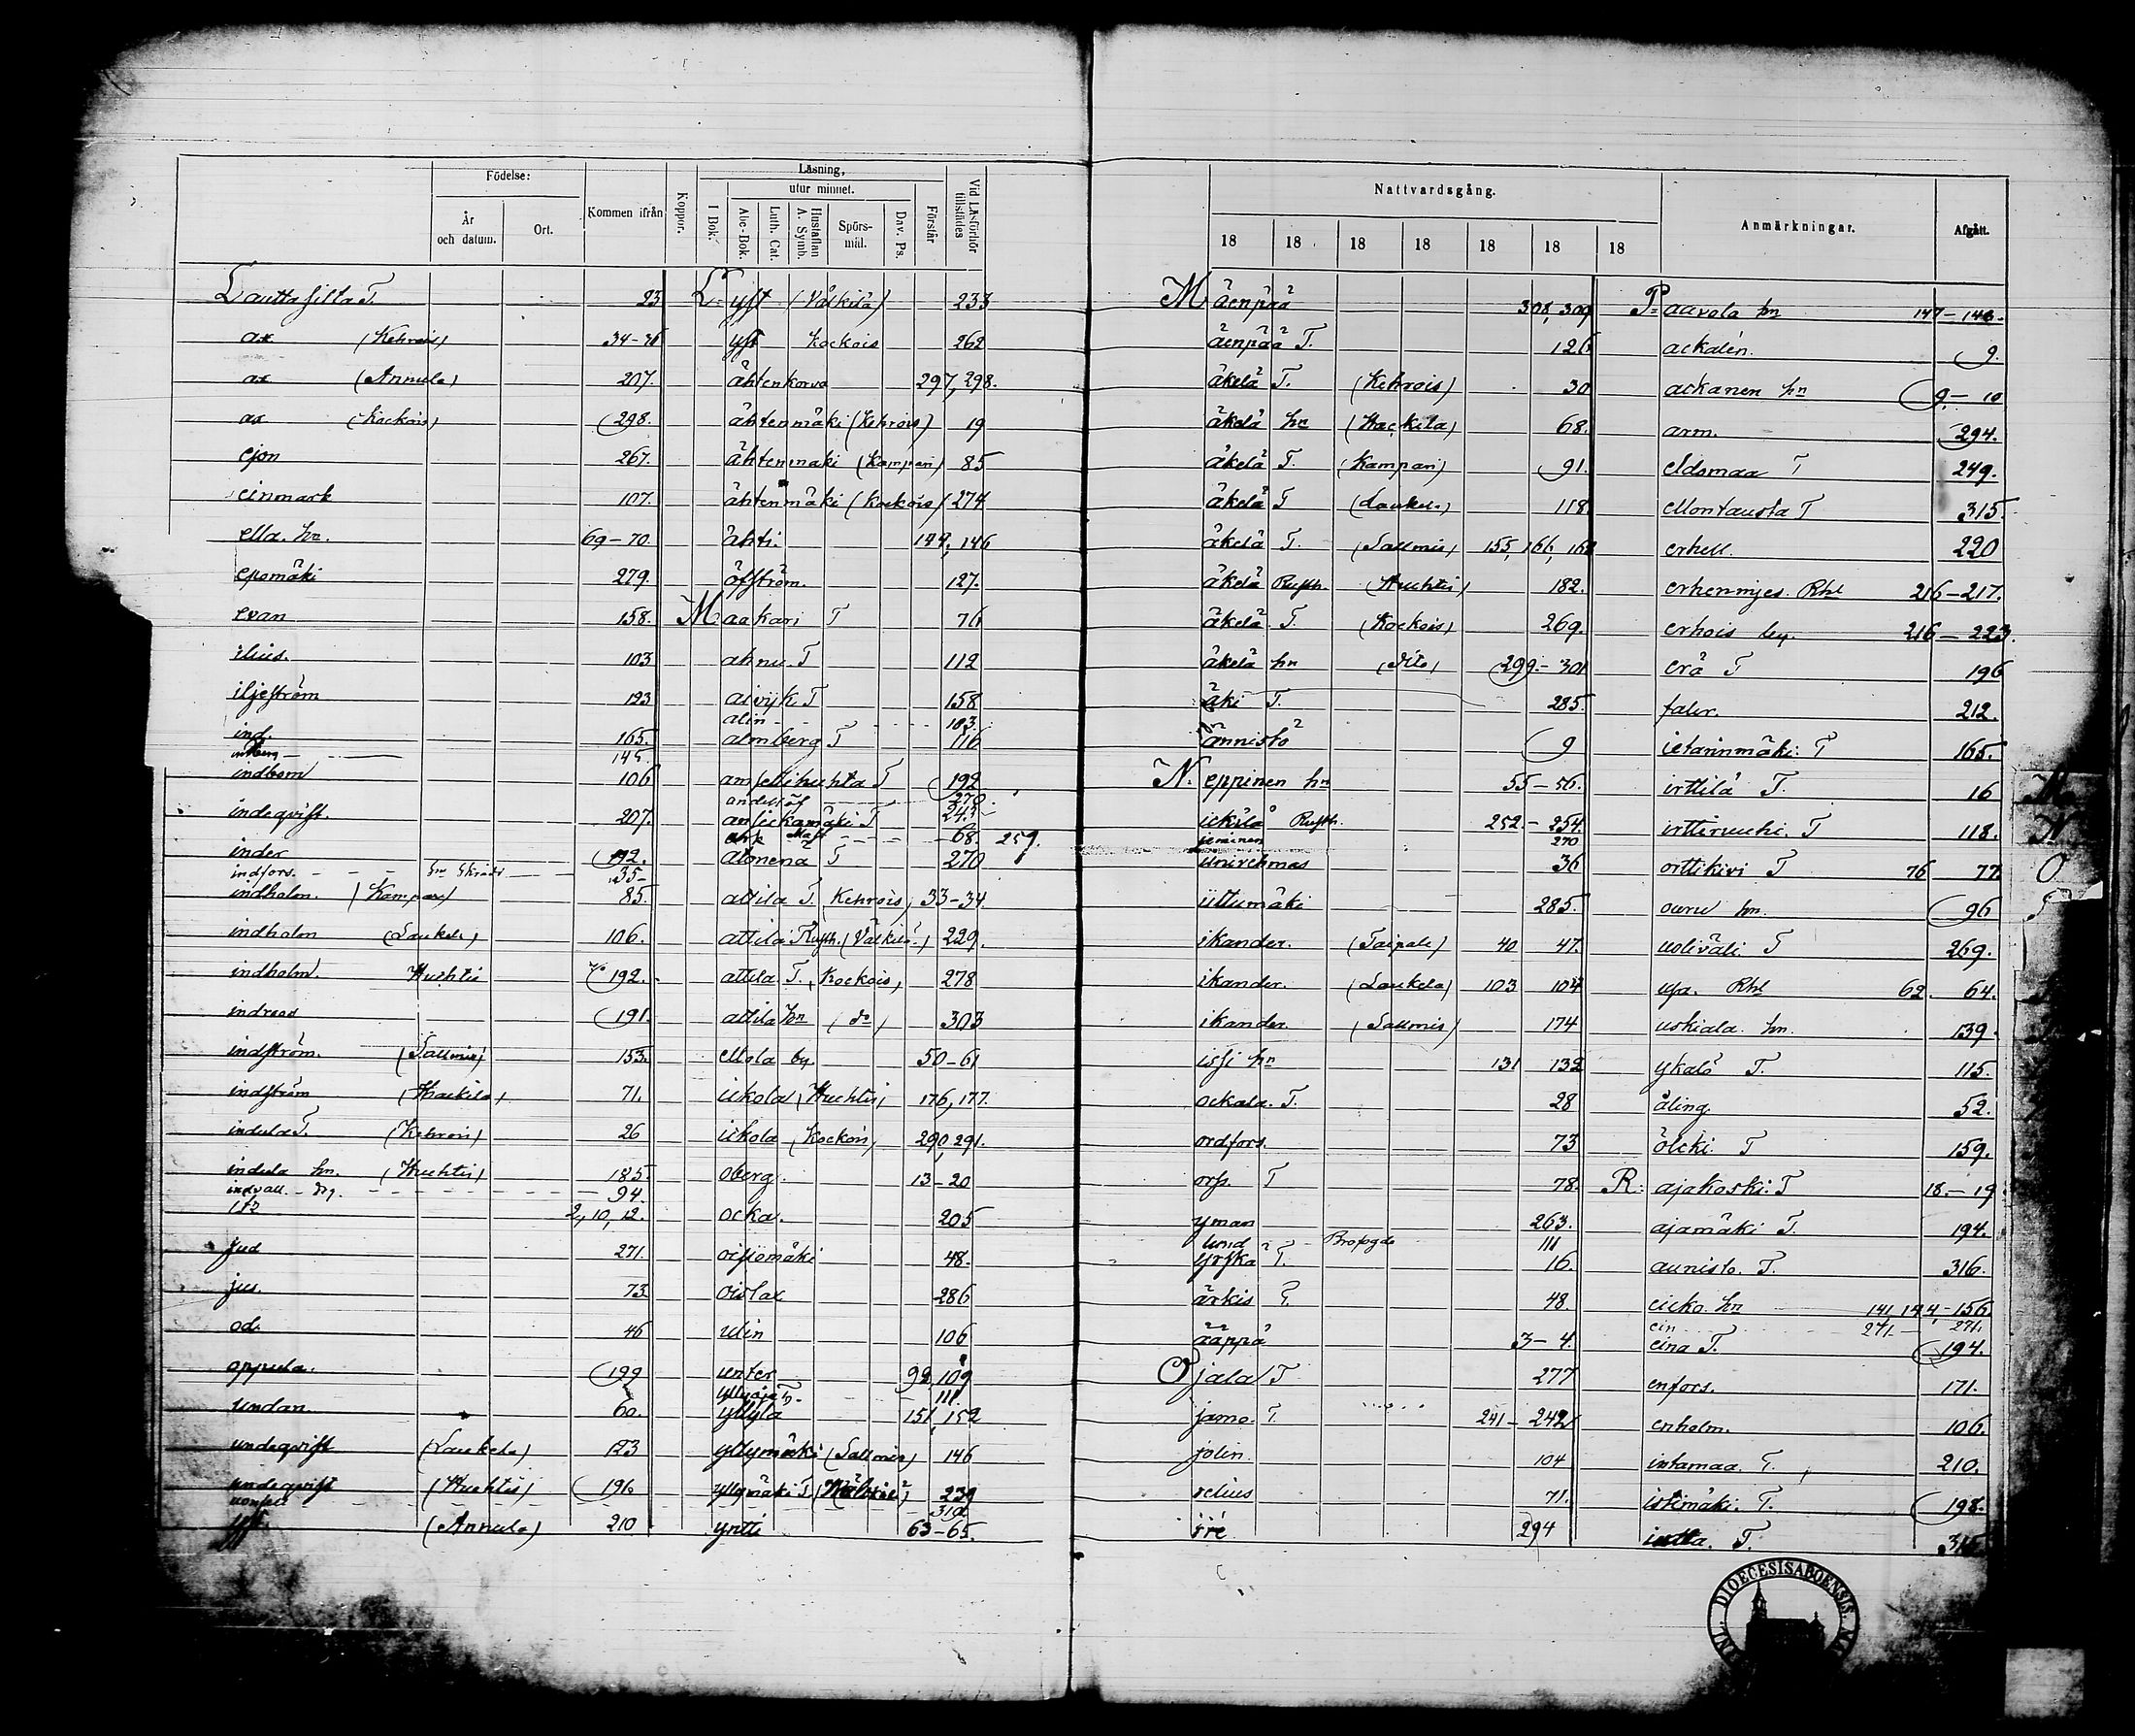 Födelse:
År och datum.
Ort.
Kommen ifrån
Koppor.
Läsning,
utur minnet.
I Bok.
Abc-Bok.
Luth. Cat.
Hustaflan A. Symb.
Spörs-mål.
Dav. Ps.
Förstår
Vid Läsförhör tillstädes
Lauttasilta T. 23
ax (Kehrois) 34-36
ax (Annula) 207.
ax (Kockois) 298.
ejon 267.
einmark 107.
ella. hn. 69-70.
epomäki 279.
evan 158.
ilius. 103
iljeström 123
ind. 165.
145.
indbom 106
indeqvist. 207.
inder 192.
indfors. 35-
indholm. (Kampari) 85.
indholm (Laukela) 106.
indholm. Huhtis 192.
indroos 191.
indström. (Sallmis) 153.
indström (Haikila) 71.
indula T. (Kehrois) 26
indula hn. (Huhtis) 185.
indvall. 94.
2, 10, 12.
jud 271.
jus. 73
od. 46
oppula. 199
undan. 60.
undeqvist (Laukela) 123
undeqvist (Huhtis) 196
(Annula) 210
L yft (Välkilä) 233
yft Kockois 262
ähtenkorva 297, 298.
ähtenmäki (Kehrois) 19
ähtenmäki (Kampari) 85
ähtenmäki (Kockois) 274
ähti. 144, 146
öfström. 127.
M aakari T 76
ahnu. T 112
158
alin 103.
almberg T 116
192
T 243
68. 259.
atonena T 270
attila T. Kehrois 33-34.
attila Rusth. (Välkilä) 229.
attila. T. Kockois, 278
attila hn (do) 303
ellola by. 50-61
iekola (Huhtis) 176, 177.
iekola (Kockois) 290, 291.
oberg. 13-20
ocka. 205
oisiomäki 48.
oislax 286
ulin 106
unter 92, 109
111.
yllylä 151, 152
yllymäki (Sallmis) 146
yllymäki T 239
yntti 63-65.
Nattvardsgång.
18 18 18 18 18 18 18
Anmärkningar.
Afgått.
M äenpää 308, 309
äenpää T. 126
äkelä T. (Kehrois) 30
äkelä hn (Haikila) 68.
äkelä T. (Kampari) 91.
äkelä T (Laukela) 118
äkelä T. (Sallmis) 155, 166, 168
äkelä Rusth. (Huhtis) 182.
äkelä T. (Kockois) 269.
äkelä hn (dito) 299-301
äki T. 285.
ännistö 9
N. eppinen hn 55-56.
ickilä Rusth. 252-254.
ieminen 270
36
iittumäki 285.
ikander. (Taipale) 40 47.
ikander. (Laukela) 103 104
ikander. (Sallmis) 174
issi hn 131 132
ockala. T. 28
ordfors. 73
orp. T 78.
yman 263.
lund 111
T. 16.
ärkis T. 48.
ääppä 3-4.
O jala T 277
jamo. T. 241-242
jolin. 104
relius 71.
294
P aavola hn 147-146.
ackalén. 9.
ackanen hn 9.- 10
arm. 294.
eldomaa T 249.
ellontausta T 315.
erhell. 220
erhenmjes. Rhl 216-217.
erhois by. 216-223.
erä T 196
faler. 212.
ietarinmäki. T 165.
irttilä T. 16
irttiruuhi. T 118.
orttikivi T 76 77
ouru hn. 96
uolivåli. T 269.
upa. Rhl 62. 64.
uskiala. hn. 139.
ykalö T. 115.
åling. 52.
ölcki. T 159.
R: ajakoski. T 18.-19
ajamäki T. 194.
aunisto. T. 316.
eicko. hn 141, 144-156
ein 271. 271.
eina T. 194.
enfors. 171.
enholm. 106.
intamaa. T. 210.
istimäki. T. 198.
T. 315
M
N
O
P
DIOECESIS ABOENSIS